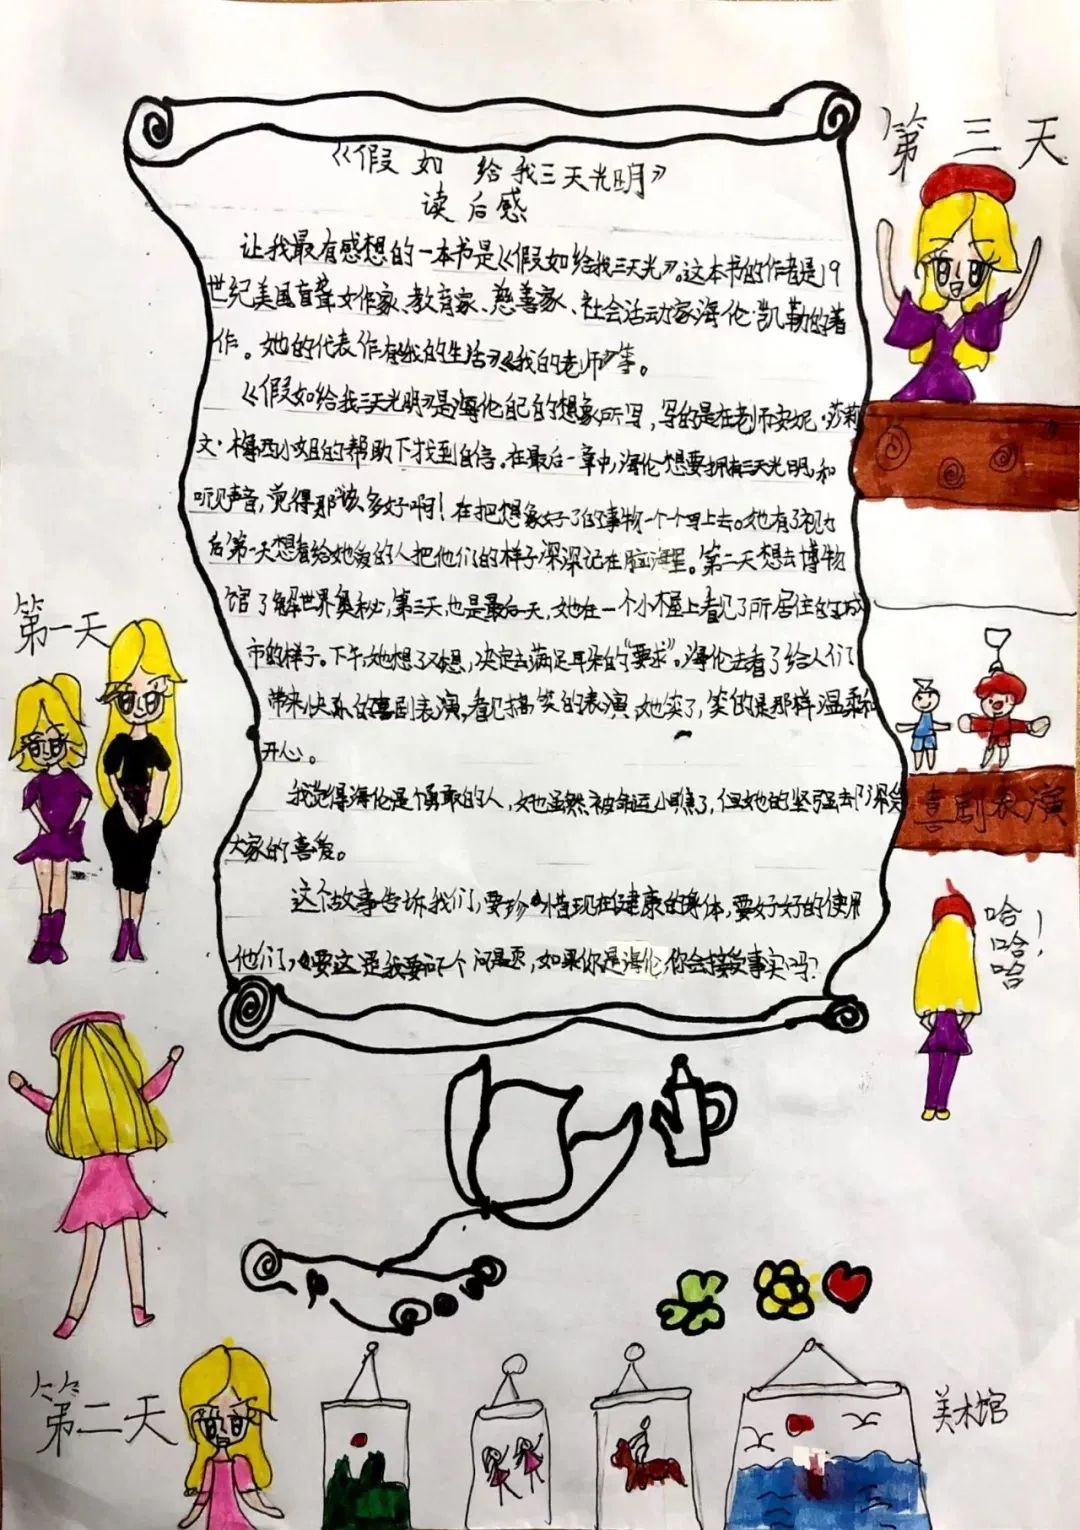 《假如给我三天光明》
读后感
让我最有感想的一本书是《假如给我三天光》。这本书的作者是19
世纪美国盲聋女作家、教育家、慈善家、社会活动家海伦·凯勒的著
作。她的代表作有《我的生活》《我的老师》等。
《假如给我三天光明》是海伦自己的想象所写,写的是在老师安妮·莎莉
文·梅西小姐的帮助下找到自信。在最后一章中,海伦想要拥有三天光明,和
听见声音,觉得那该多好啊!在把想象好了的事物一个一个写上去。她有了视力
后第一天想看给她爱的人把他们的样子深深记在脑海里。第二天想去博物
馆了解世界奥秘,第三天,也是最后一天,她在一个小木屋上看见了所居住的城
市的样子。下午,她想了又想,决定去满足耳朵的“要求”。海伦去看了给人们
带来快乐的喜剧表演。看见搞笑的表演,她笑了,笑的是那样温柔和
开心。
我觉得海伦是个勇敢的人,她虽然被命运小瞧了,但她的坚强去
大家的喜爱。
这个故事告诉我们,要珍惜现在健康的身体,要好好的使用
他们,要这是我要问个问题,如果你是海伦,你会接受事实吗?
第三天
喜剧表演
哈
哈!
哈
第一天
第二天
美术馆